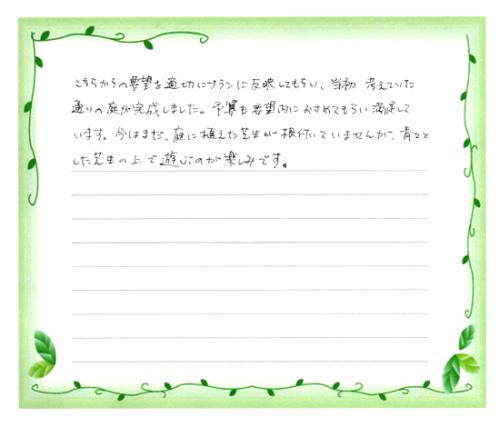 こちらからの要望を適切にプランに反映してもらい、当初 考えていた
通りの庭が完成しました。予算も要望内におさめてもらい満足して
います。今はまだ、庭に植えた芝生が根付いていませんが、青々と
した芝生の上で遊ぶのが楽しみです。